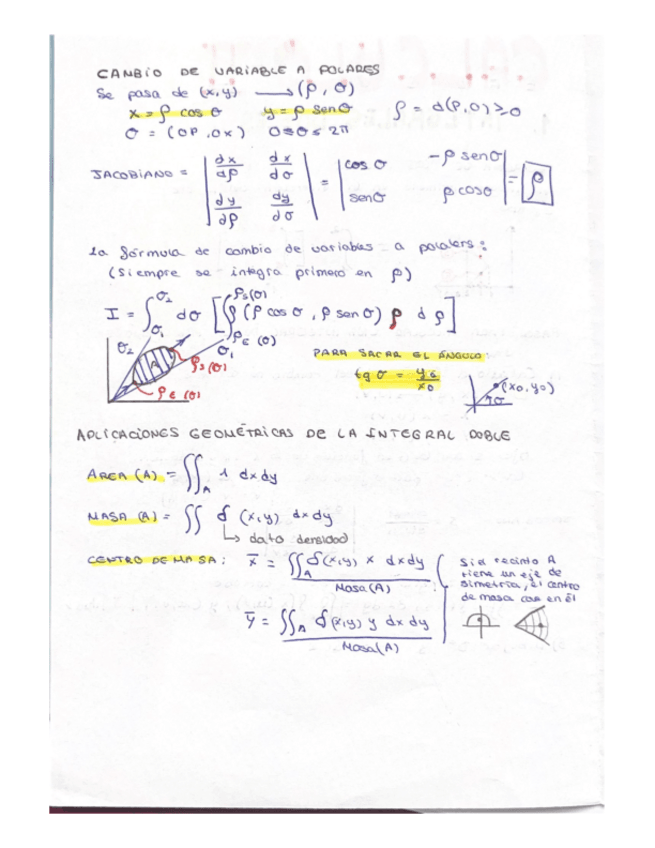 CAMBIO DE VARIABLE A POLARES
Se pasa de (x,y) ⟶ (ρ, θ)
x = ρ cos θ    y = ρ sen θ    ρ = d(P,O) ≥ 0
θ = (OP, OX)    0 ≤ θ ≤ 2π
JACOBIANO = | dx/dρ  dx/dθ ; dy/dρ  dy/dθ | = | cos θ  -ρ sen θ ; sen θ  ρ cos θ | = ρ
la fórmula de cambio de variables a polalers:
(Siempre se integra primero en ρ)
I = ∫ θ₁ θ₂ dθ [ ∫ ρE(θ) ρS(θ) (ρ cos θ, ρ sen θ) ρ dρ ]
θ₂ A θ₁ ρS(θ) ρE(θ)
PARA SACAR EL ÁNGULO:
tg θ = y₀/x₀
(x₀, y₀)
θ
APLICACIONES GEOMÉTRICAS DE LA INTEGRAL DOBLE
AREA (A) = ∬A 1 dxdy
MASA (A) = ∬ δ (x,y) dxdy
↳ dato densidad
CENTRO DE MASA: x̄ = ∬A δ(x,y) x dxdy / Masa(A)
ȳ = ∬A δ(x,y) y dxdy / Masa(A)
Si el recinto A
tiene un eje de
simetría, el centro
de masa cae en él